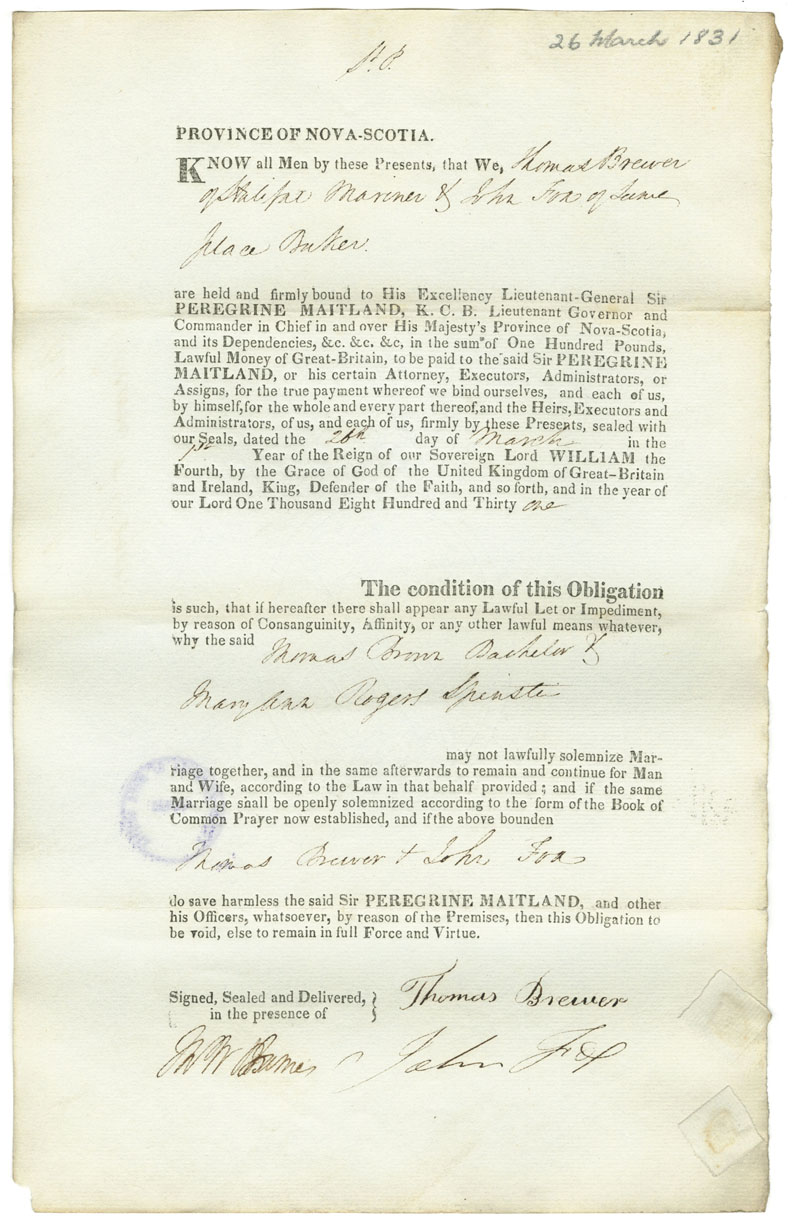 26 March 1831
St. P.
PROVINCE OF NOVA-SCOTIA.
KNOW all Men by these Presents, that We, Thomas Brewer
of Halifax Mariner & John Fox of Same
place Baker.
are held and firmly bound to His Excellency Lieutenant-General Sir
PEREGRINE MAITLAND, K. C. B. Lieutenant Governor and
Commander in Chief in and over His Majesty's Province of Nova-Scotia,
and its Dependencies, &c. &c. &c, in the sum of One Hundred Pounds,
Lawful Money of Great-Britain, to be paid to the said Sir PEREGRINE
MAITLAND, or his certain Attorney, Executors, Administrators, or
Assigns, for the true payment whereof we bind ourselves, and each of us,
by himself, for the whole and every part thereof, and the Heirs, Executors and
Administrators, of us, and each of us, firmly by these Presents, sealed with
our Seals, dated the 26th day of March in the
1st Year of the Reign of our Sovereign Lord WILLIAM the
Fourth, by the Grace of God of the United Kingdom of Great-Britain
and Ireland, King, Defender of the Faith, and so forth, and in the year of
our Lord One Thousand Eight Hundred and Thirty one
The condition of this Obligation
is such, that if hereafter there shall appear any Lawful Let or Impediment,
by reason of Consanguinity, Affinity, or any other lawful means whatever,
why the said Thomas Brown Bachelor &
Mary Ann Rogers Spinster
may not lawfully solemnize Mar-
riage together, and in the same afterwards to remain and continue for Man
and Wife, according to the Law in that behalf provided; and if the same
Marriage shall be openly solemnized according to the form of the Book of
Common Prayer now established, and if the above bounden
Thomas Brewer + John Fox
do save harmless the said Sir PEREGRINE MAITLAND, and other
his Officers, whatsoever, by reason of the Premises, then this Obligation to
be void, else to remain in full Force and Virtue.
Signed, Sealed and Delivered, } Thomas Brewer
in the presence of
John Fox